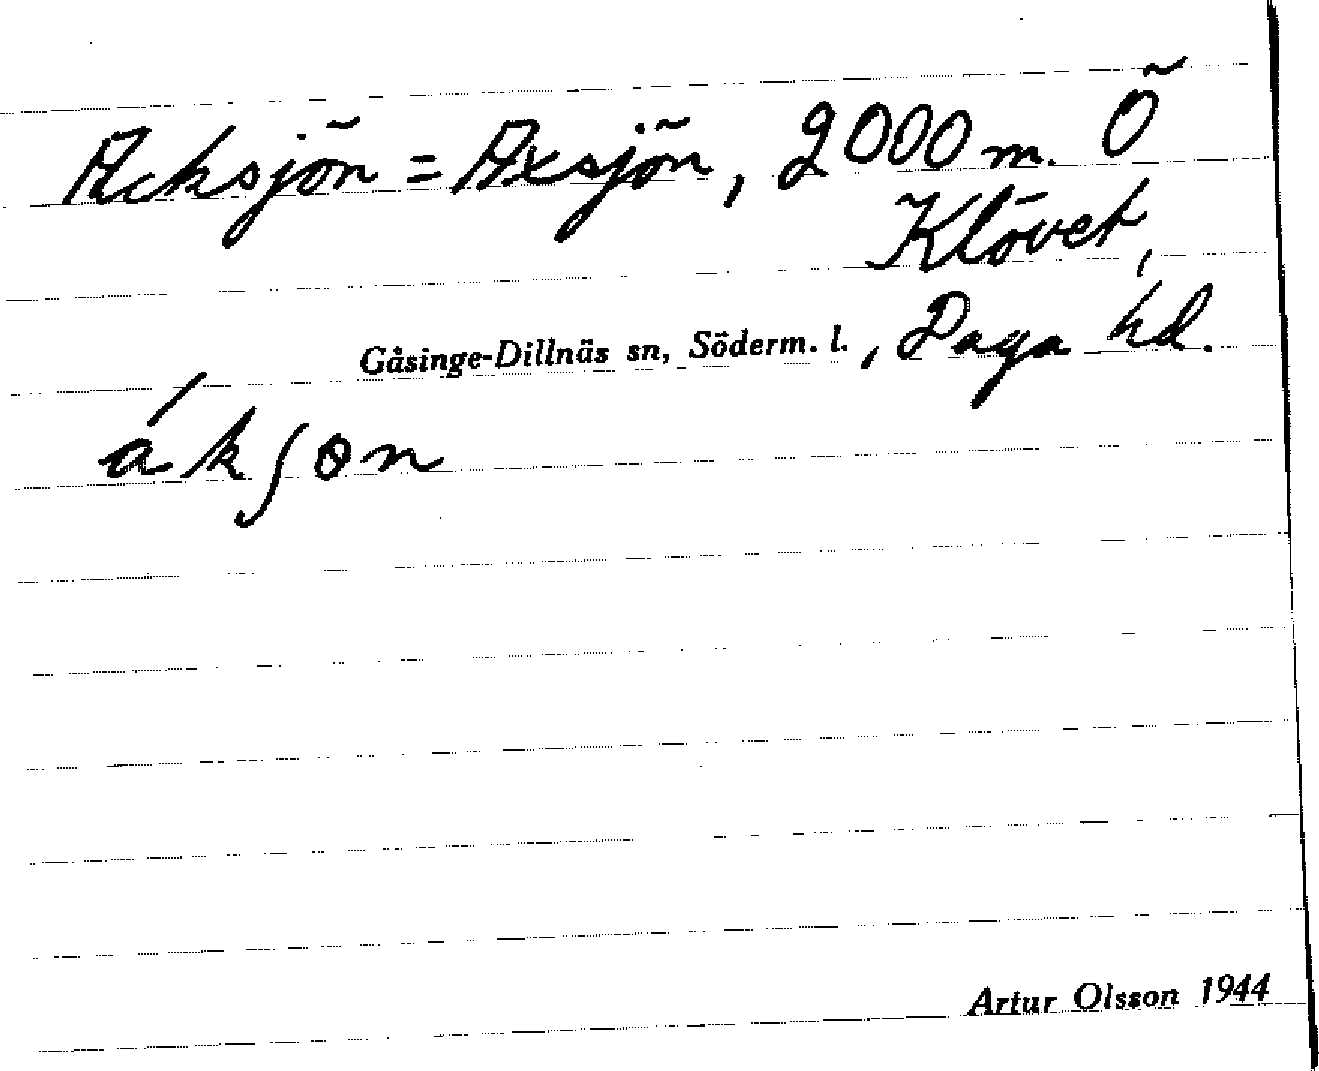 Acksjön = Axsjön, 2000 m. Ö
Klövet,
Gåsinge-Dillnäs sn, Söderm. l., Daga hd.
ákʃɵn
Artur Olsson 1944